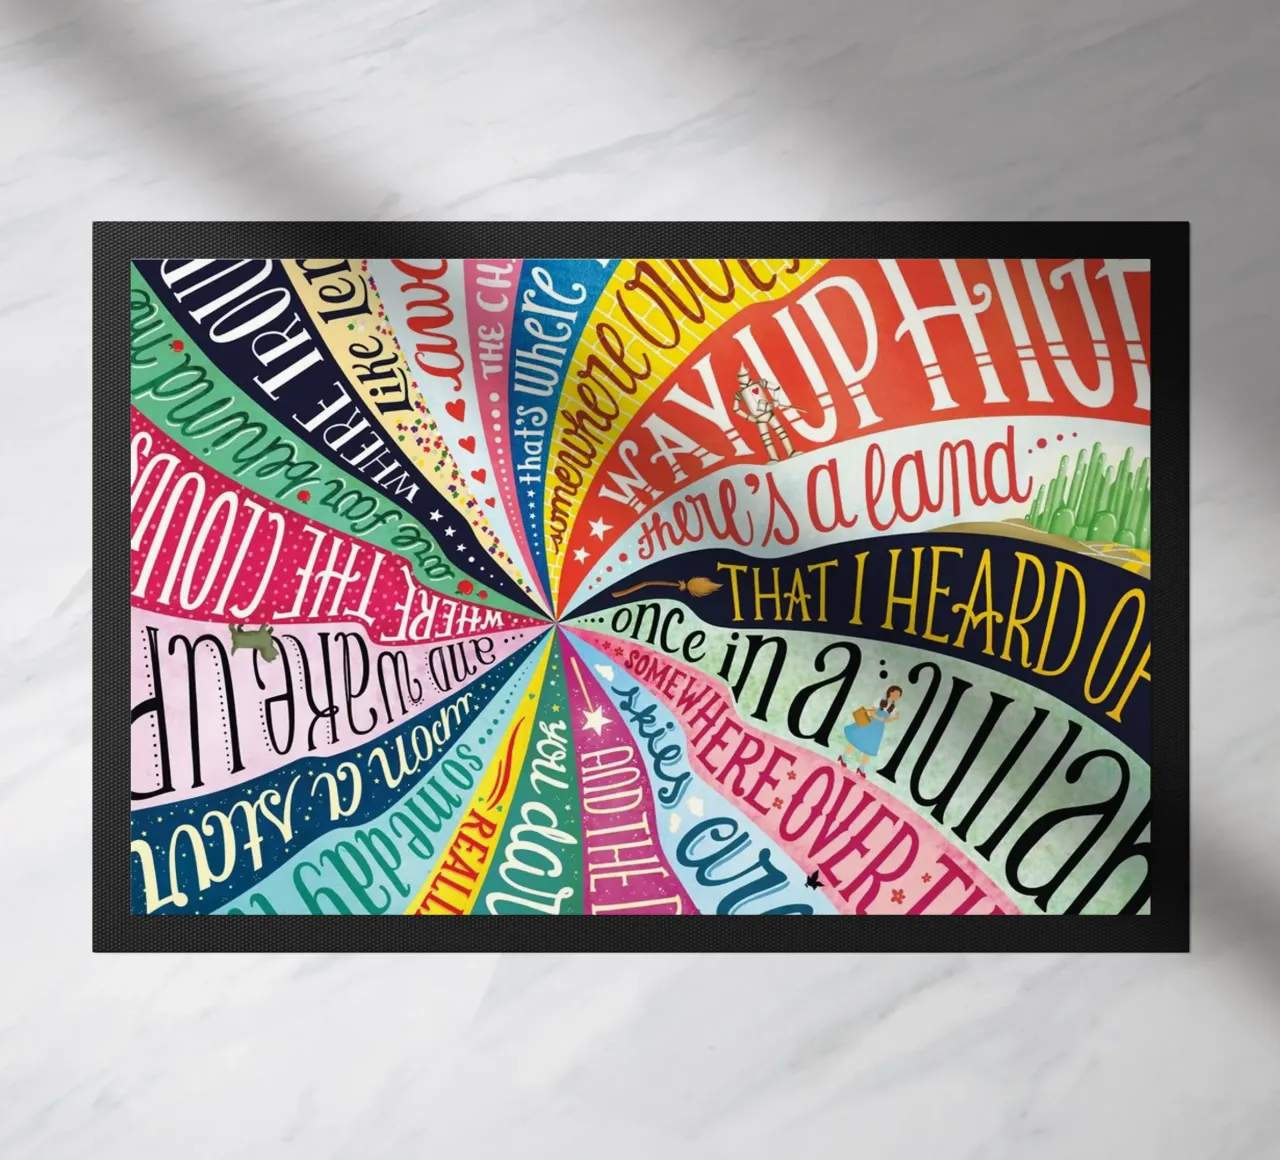 somewhere over
WAY UP HIGH
there's a land
THAT I HEARD OF
once in a lullab
SOMEWHERE OVER T
skies are
AND THE D
you dar
REALL
someday
upon a star
and wake up
WHERE THE CLOUDS
are far behind me
WHERE TROUB
Like lem
awa
THE CH
that's where